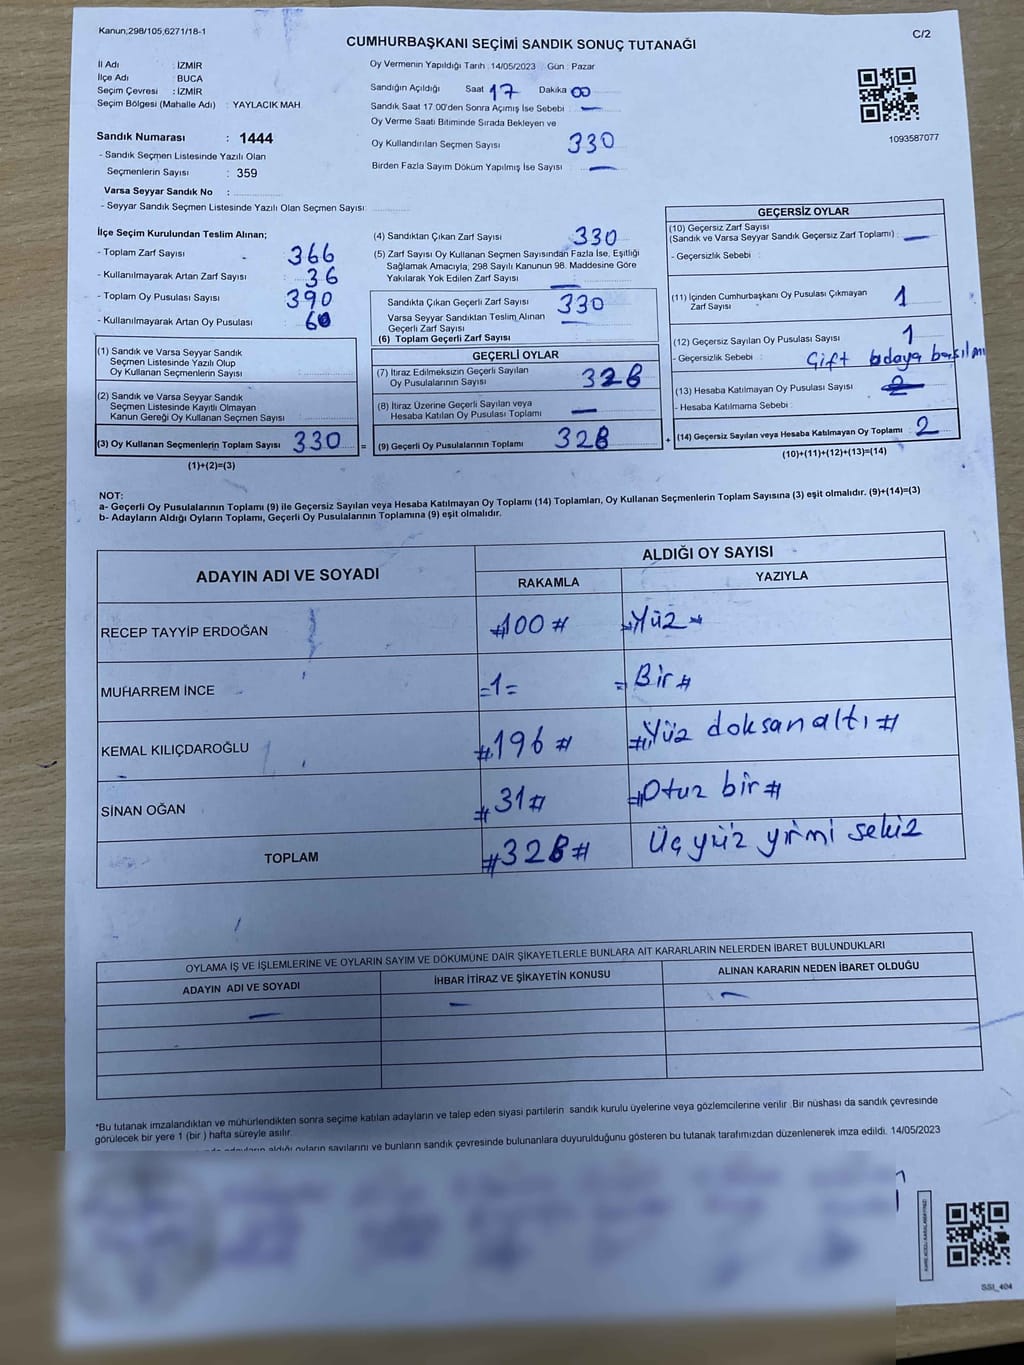 Kanun,298/105,6271/18-1
C/2
CUMHURBAŞKANI SEÇİMİ SANDIK SONUÇ TUTANAĞI
İl Adı : İZMİR
İlçe Adı : BUCA
Seçim Çevresi : İZMİR
Seçim Bölgesi (Mahalle Adı) : YAYLACIK MAH
Sandık Numarası : 1444
- Sandık Seçmen Listesinde Yazılı Olan
Seçmenlerin Sayısı : 359
Varsa Seyyar Sandık No :
- Seyyar Sandık Seçmen Listesinde Yazılı Olan Seçmen Sayısı:
Oy Vermenin Yapıldığı Tarih : 14/05/2023 Gün : Pazar
Sandığın Açıldığı Saat 17 Dakika 00
Sandık Saat 17.00'den Sonra Açımış İse Sebebi : —
Oy Verme Saati Bitiminde Sırada Bekleyen ve
Oy Kullandırılan Seçmen Sayısı 330
Birden Fazla Sayım Döküm Yapılmış İse Sayısı —
1093587077
İlçe Seçim Kurulundan Teslim Alınan;
- Toplam Zarf Sayısı 366
- Kullanılmayarak Artan Zarf Sayısı 36
- Toplam Oy Pusulası Sayısı 390
- Kullanılmayarak Artan Oy Pusulası 60
(1) Sandık ve Varsa Seyyar Sandık
Seçmen Listesinde Yazılı Olup
Oy Kullanan Seçmenlerin Sayısı
(2) Sandık ve Varsa Seyyar Sandık
Seçmen Listesinde Kayıtlı Olmayan
Kanun Gereği Oy Kullanan Seçmen Sayısı
(3) Oy Kullanan Seçmenlerin Toplam Sayısı 330 =
(1)+(2)=(3)
(4) Sandıktan Çıkan Zarf Sayısı 330
(5) Zarf Sayısı Oy Kullanan Seçmen Sayısından Fazla İse, Eşitliği
Sağlamak Amacıyla, 298 Sayılı Kanunun 98. Maddesine Göre
Yakılarak Yok Edilen Zarf Sayısı —
Sandıkta Çıkan Geçerli Zarf Sayısı 330
Varsa Seyyar Sandıktan Teslim Alınan
Geçerli Zarf Sayısı —
(6) Toplam Geçerli Zarf Sayısı
GEÇERLİ OYLAR
(7) İtiraz Edilmeksizin Geçerli Sayılan
Oy Pusulalarının Sayısı 328
(8) İtiraz Üzerine Geçerli Sayılan veya
Hesaba Katılan Oy Pusulası Toplamı —
(9) Geçerli Oy Pusulalarının Toplamı 328 +
GEÇERSİZ OYLAR
(10) Geçersiz Zarf Sayısı
(Sandık ve Varsa Seyyar Sandık Geçersiz Zarf Toplamı) : —
- Geçersizlik Sebebi :
(11) İçinden Cumhurbaşkanı Oy Pusulası Çıkmayan
Zarf Sayısı 1
(12) Geçersiz Sayılan Oy Pusulası Sayısı 1
- Geçersizlik Sebebi : Çift adaya basılmı
(13) Hesaba Katılmayan Oy Pusulası Sayısı
- Hesaba Katılmama Sebebi :
(14) Geçersiz Sayılan veya Hesaba Katılmayan Oy Toplamı : 2
(10)+(11)+(12)+(13)=(14)
NOT:
a- Geçerli Oy Pusulalarının Toplamı (9) ile Geçersiz Sayılan veya Hesaba Katılmayan Oy Toplamı (14) Toplamları, Oy Kullanan Seçmenlerin Toplam Sayısına (3) eşit olmalıdır. (9)+(14)=(3)
b- Adayların Aldığı Oyların Toplamı, Geçerli Oy Pusulalarının Toplamına (9) eşit olmalıdır.
ADAYIN ADI VE SOYADI ALDIĞI OY SAYISI
RAKAMLA YAZIYLA
RECEP TAYYİP ERDOĞAN #100# Yüz
MUHARREM İNCE =1= =Bir#
KEMAL KILIÇDAROĞLU #196# #Yüz doksan altı#
SİNAN OĞAN #31# #Otuz bir#
TOPLAM #328# Üç yüz yirmi sekiz
OYLAMA İŞ VE İŞLEMLERİNE VE OYLARIN SAYIM VE DÖKÜMÜNE DAİR ŞİKAYETLERLE BUNLARA AİT KARARLARIN NELERDEN İBARET BULUNDUKLARI
ADAYIN ADI VE SOYADI İHBAR İTİRAZ VE ŞİKAYETİN KONUSU ALINAN KARARIN NEDEN İBARET OLDUĞU
— — —
*Bu tutanak imzalandıktan ve mühürlendikten sonra seçime katılan adayların ve talep eden siyasi partilerin sandık kurulu üyelerine veya gözlemcilerine verilir .Bir nüshası da sandık çevresinde
görülecek bir yere 1 (bir ) hafta süreyle asılır.
aldığı oyların sayılarını ve bunların sandık çevresinde bulunanlara duyurulduğunu gösteren bu tutanak tarafımızdan düzenlenerek imza edildi. 14/05/2023
SSI_404